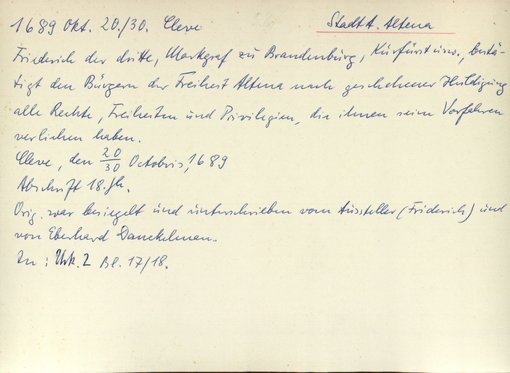 1689 Okt. 20./30. Cleve
Stadt A. Altena
Friederich der dritte, Markgraf zu Brandenburg, Kurfürst usw., bestä-
tigt den Bürgern der Freiheit Altena nach geschehener Huldigung
alle Rechte, Freiheiten und Privilegien, die ihnen seine Vorfahren
verliehen haben.
Cleve, den 20/30 Octobris, 1689
Abschrift 18. Jh.
Orig. war besiegelt und unterschrieben vom Aussteller (Friderich) und
von Eberhard Danckelman.
In: Urk. 2 Bl. 17/18.